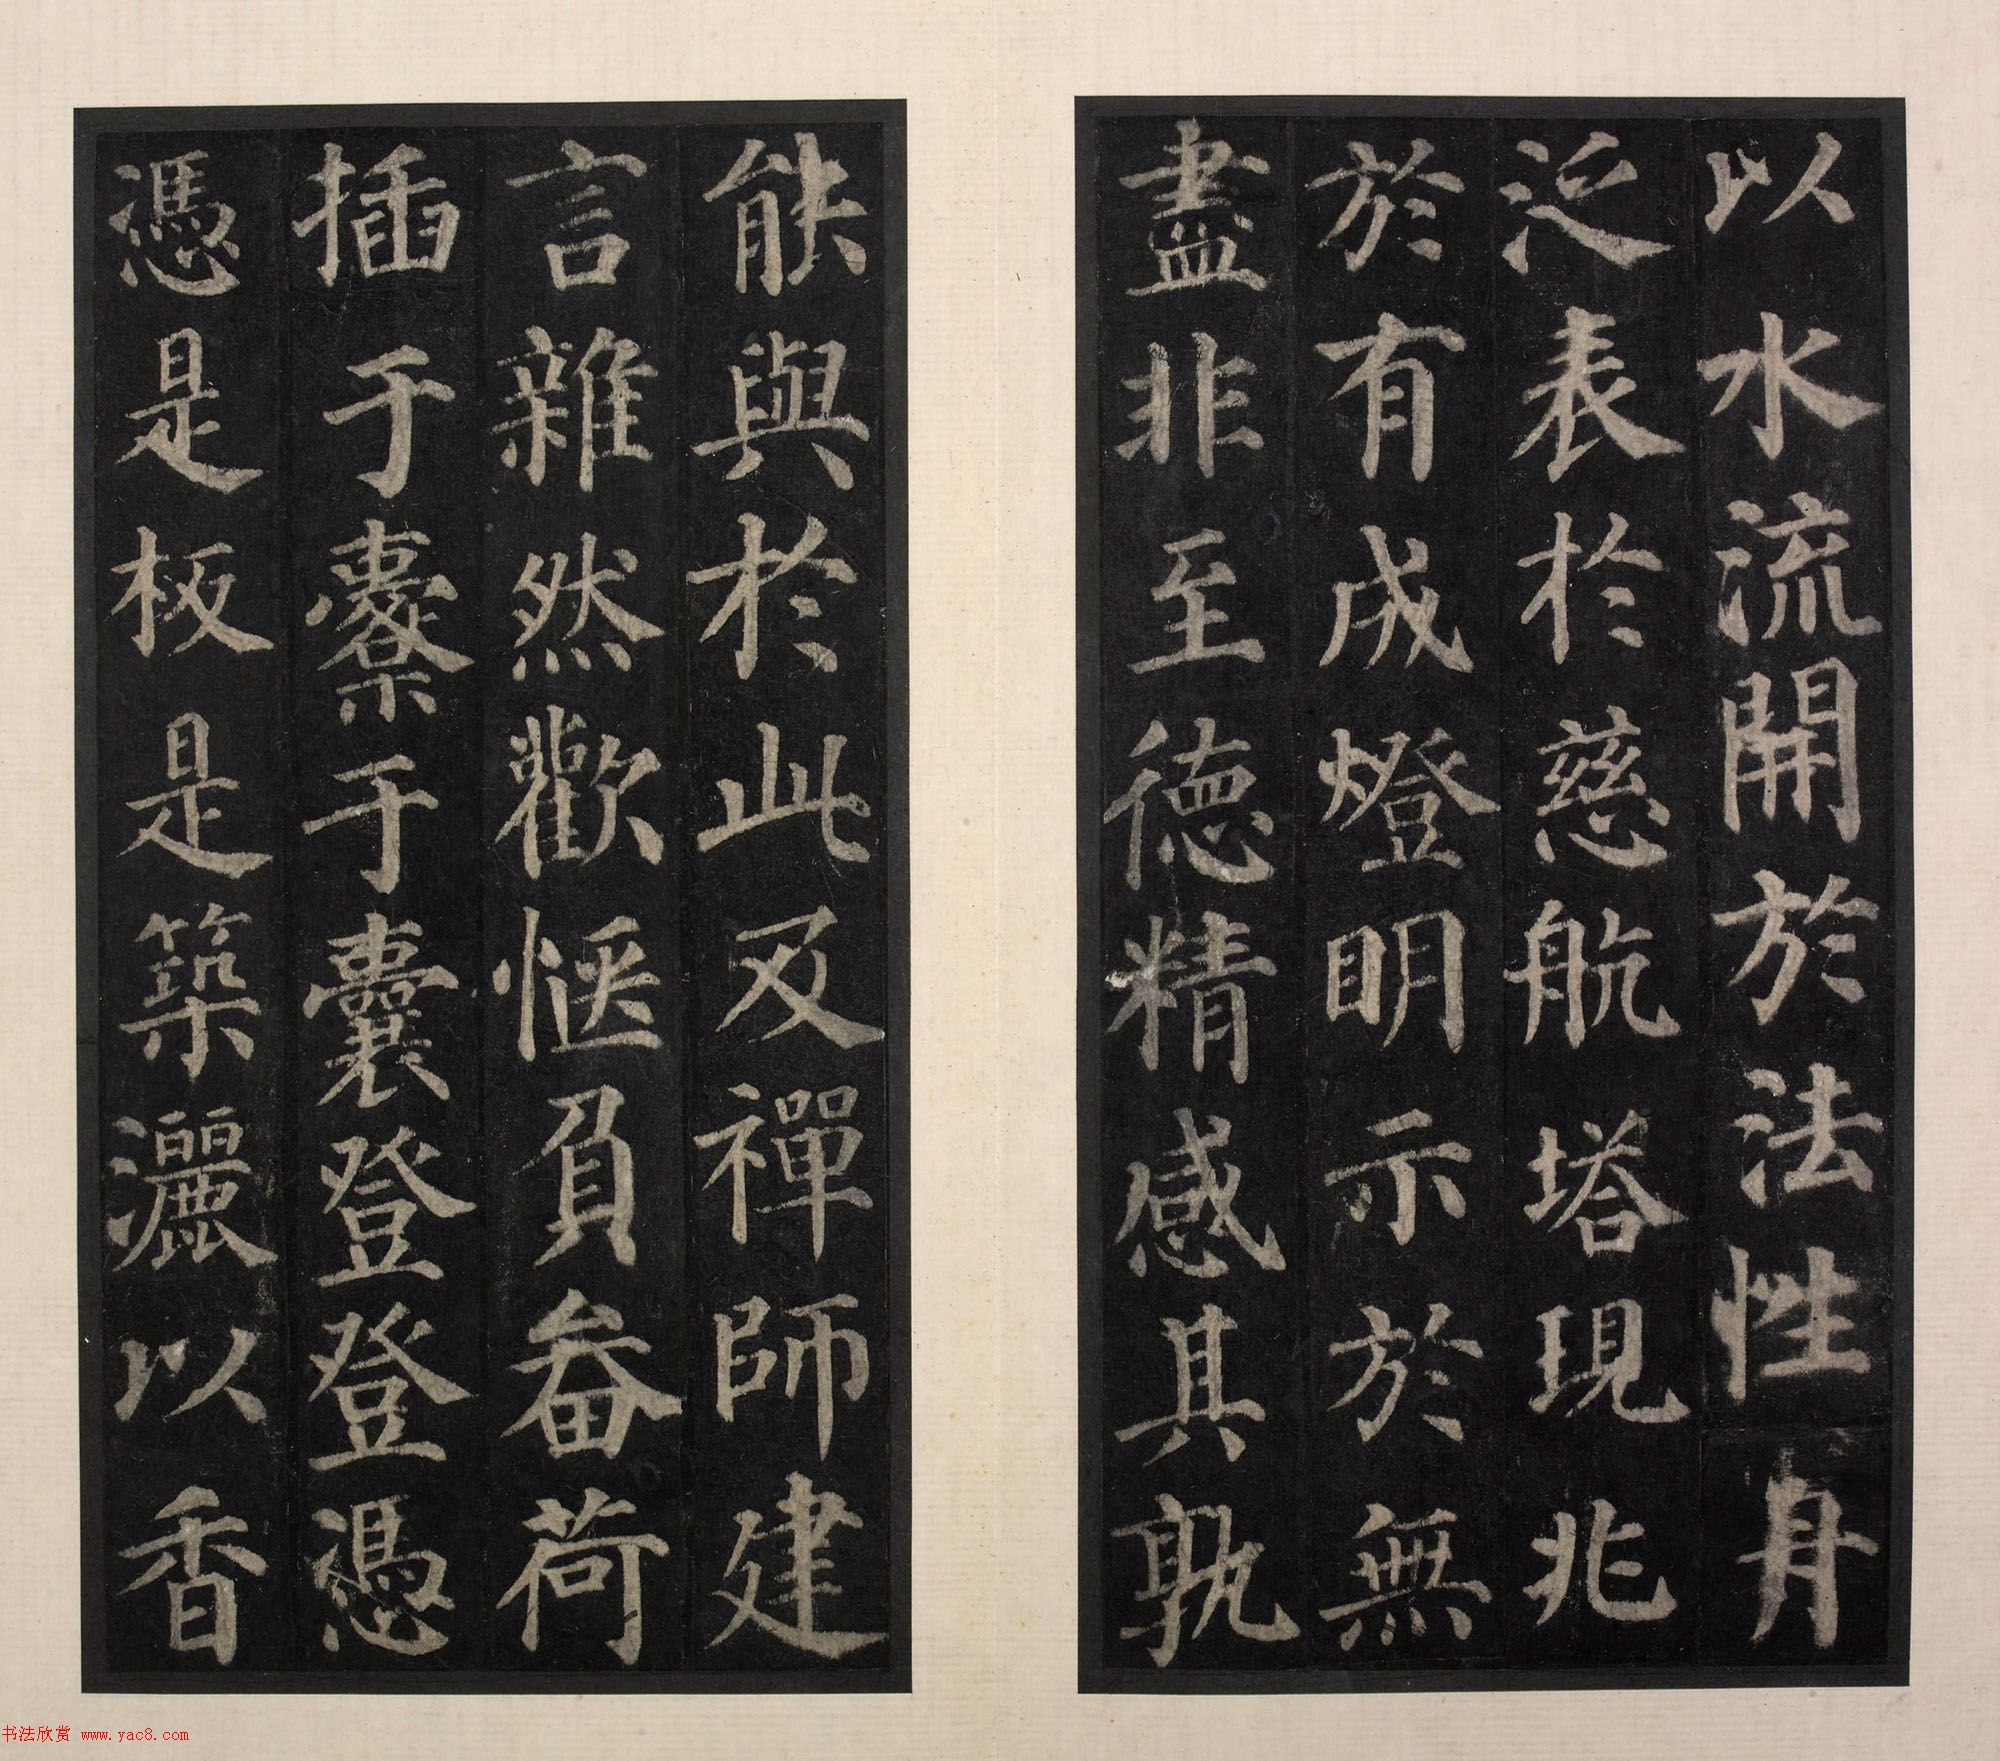 以水流開於法性身
泛表於慈航塔現兆
於有成燈明示於無
盡非至德精感其孰
能與於此及禪師建
言雜然歡愜負畚荷
插于橐于囊登登憑
憑是板是築灑以香
书法欣赏 www.yac8.com